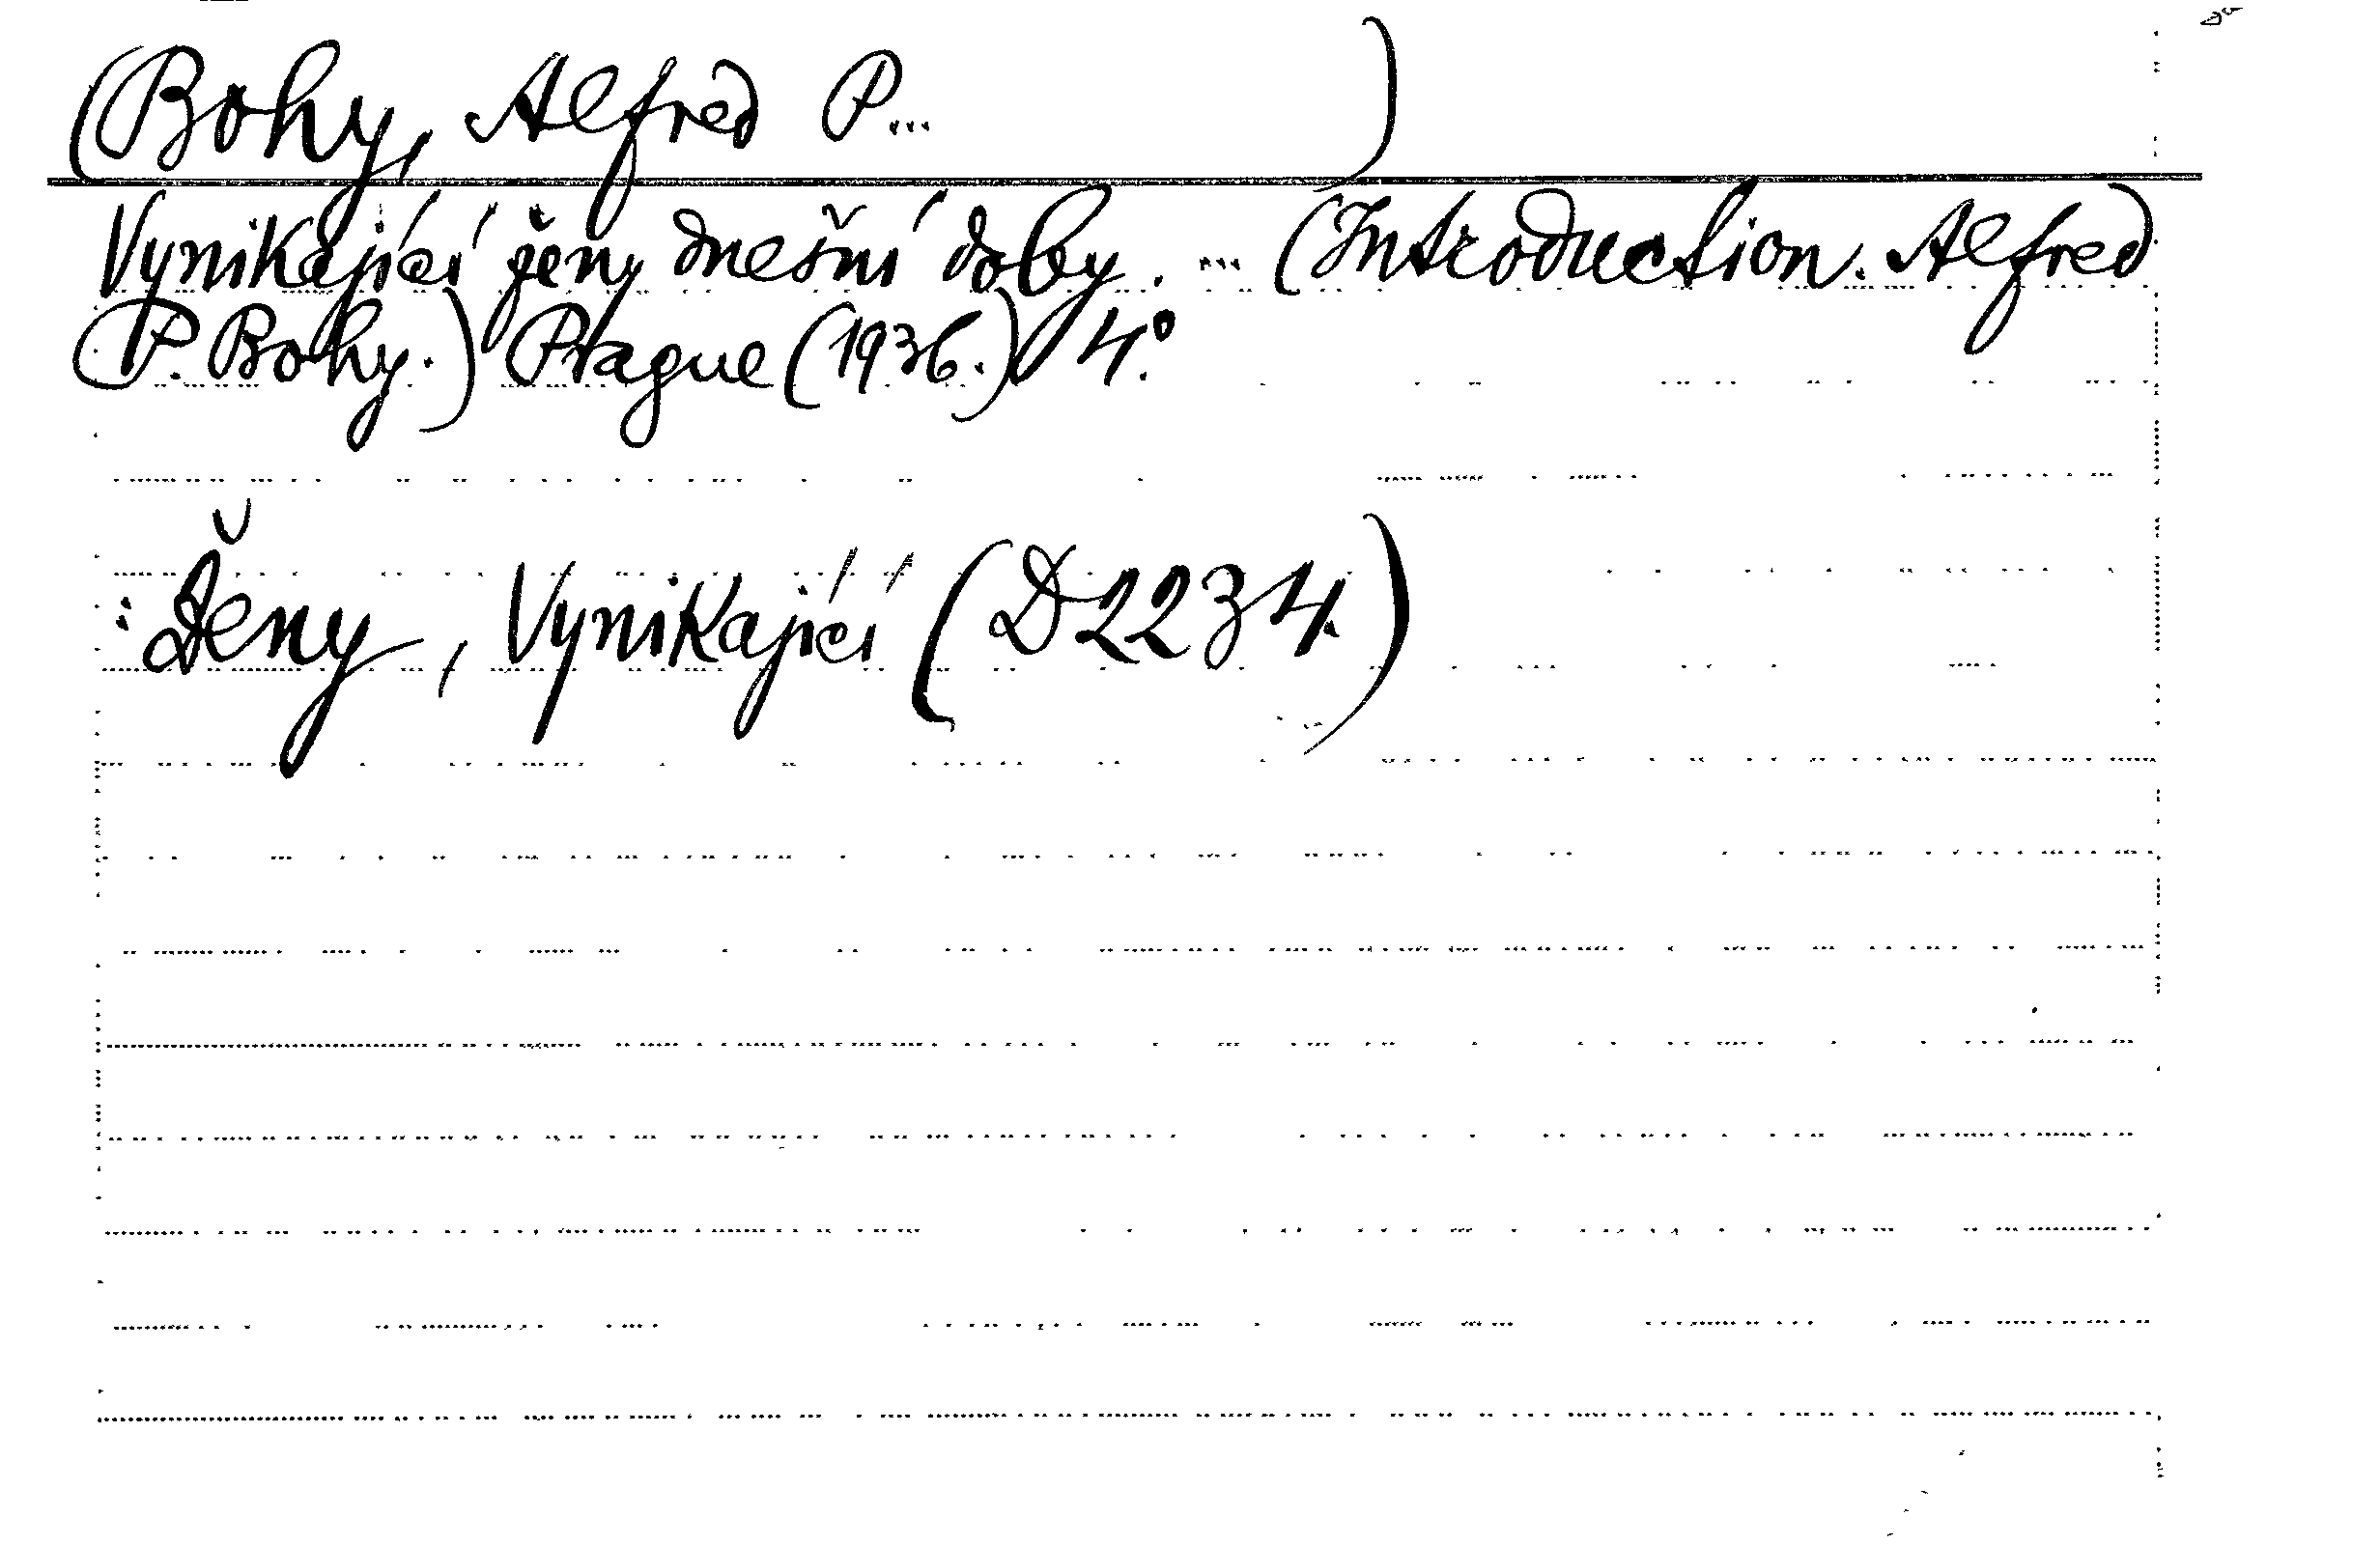 (Bohy, Alfred P... )
Vynikající ženy dnešní doby. ... (Introduction. Alfred
P. Bohy.) Prague (1936.) 4º.
: Ženy, Vynikající (D2234.)